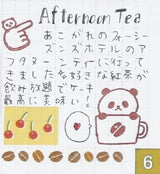 Afternoon Tea
あこがれのフォーシー
ズンズホテルのア
フタヌーンティーに行って
きました♡好きな紅茶が
飲み放題でケーキ
最高に美味い!
6